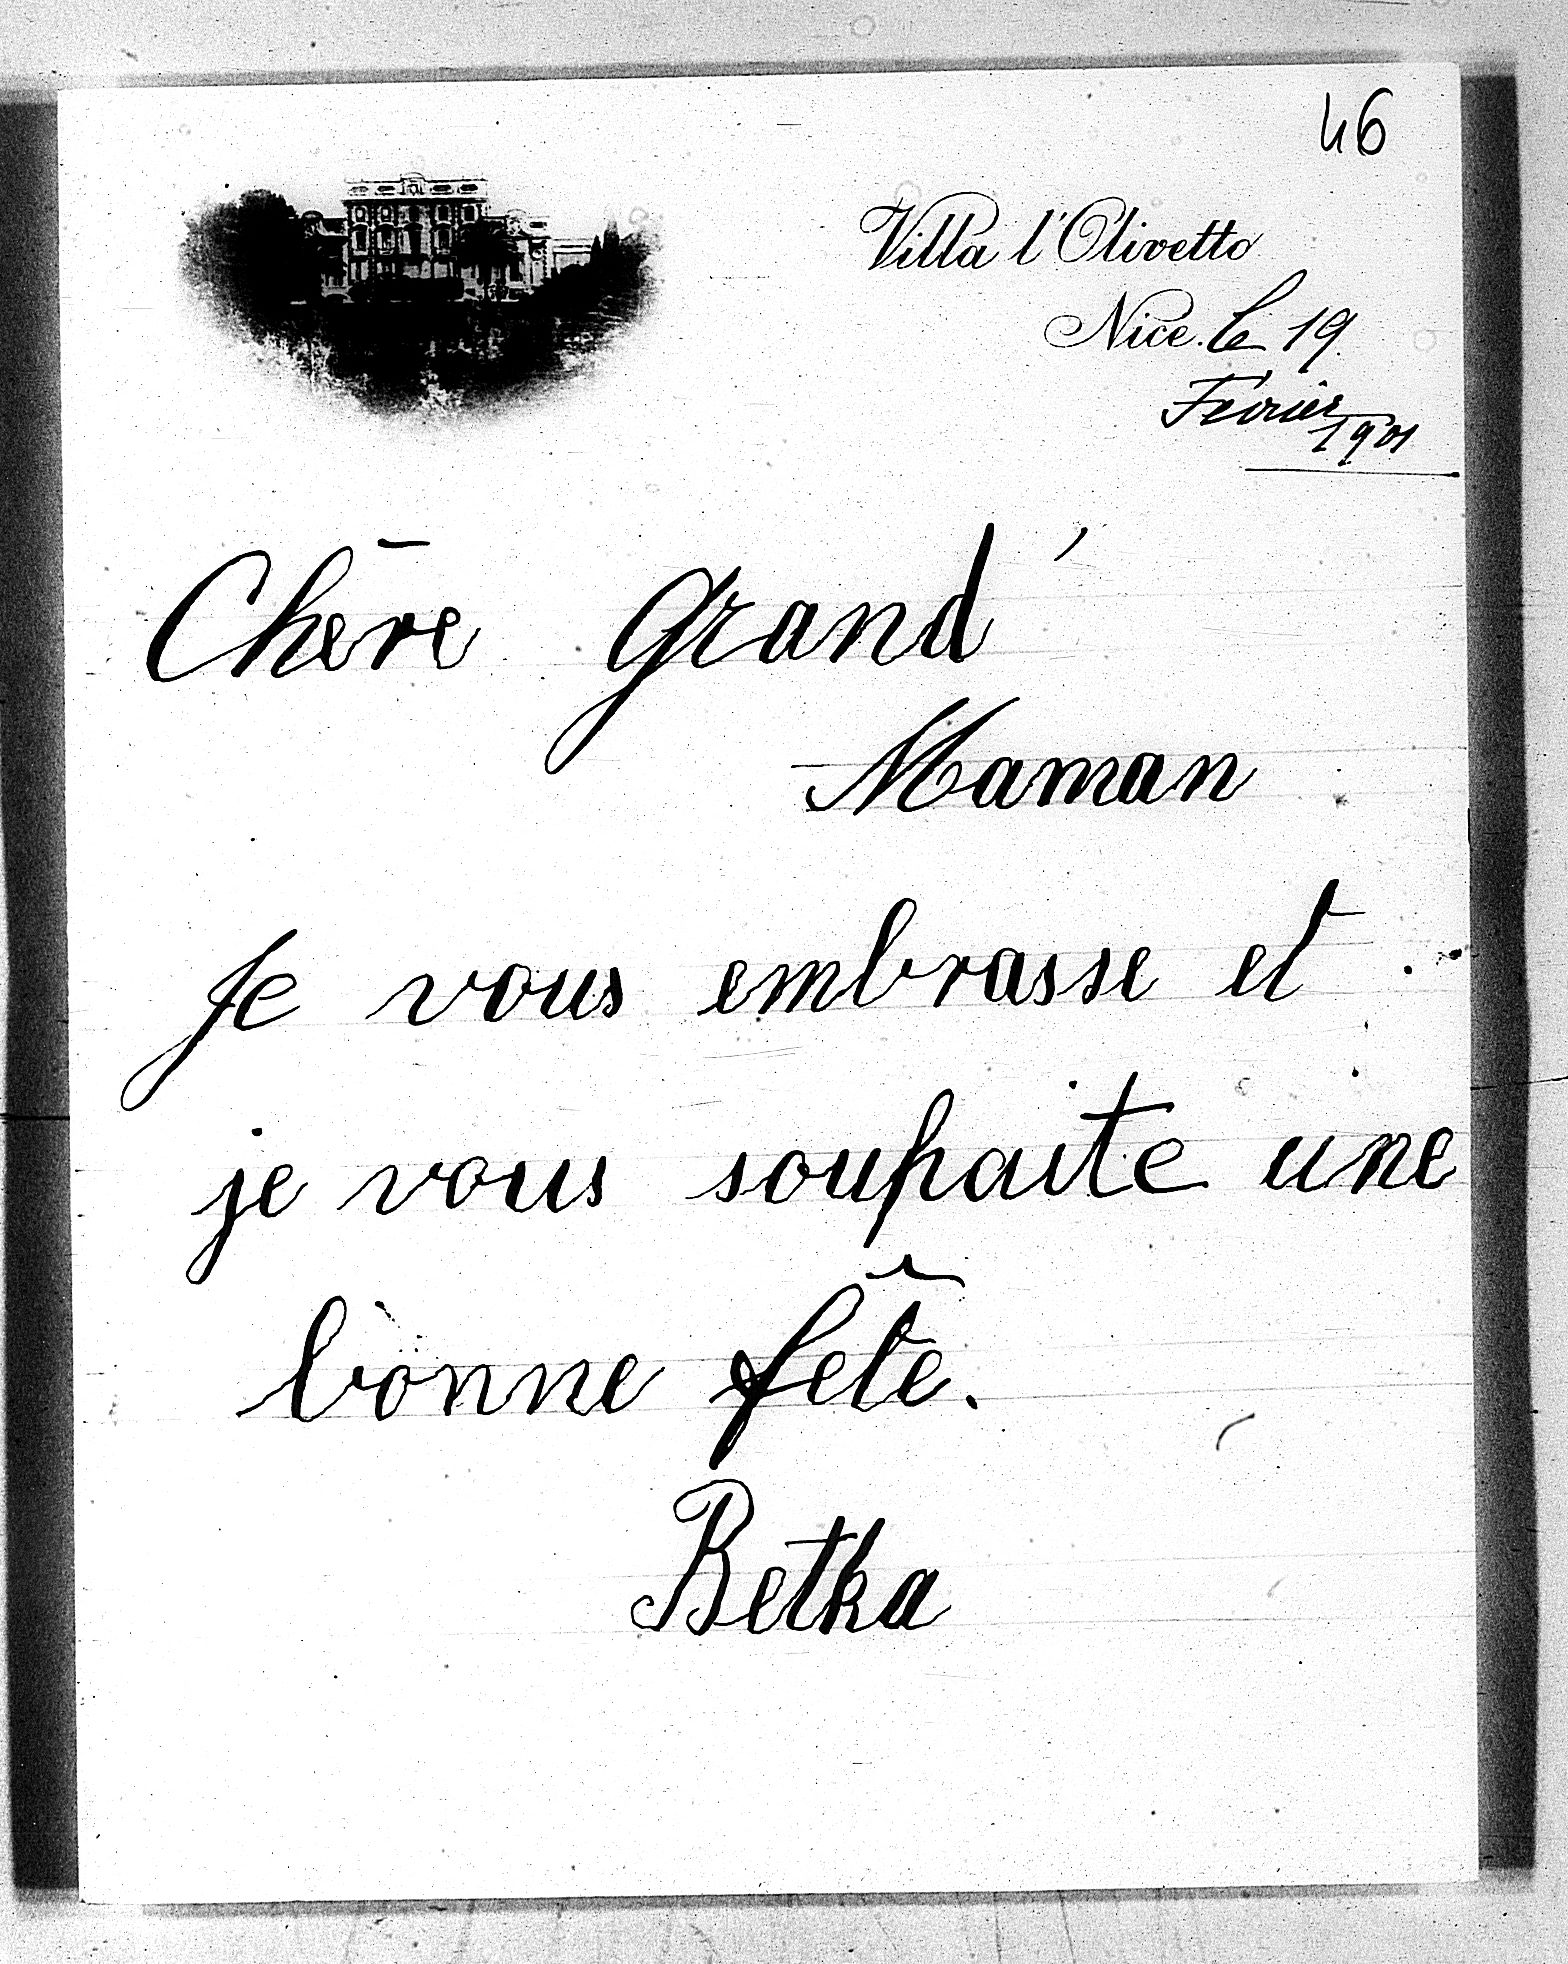 46
Villa l'Olivetto
Nice. le 19
Février
1901
Chère Grand'
Maman
Je vous embrasse et
je vous souhaite une
bonne fête.
Betka